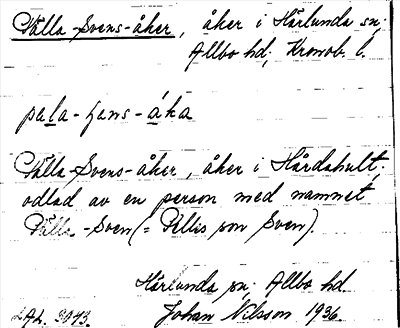 Pälla-Svens-åker, åker i Härlunda sn.
Allbo hd, Kronob. l.
Pälla-Svens-åker, åker i Hårdahult,
odlad av en person med namnet
Pälla-Sven (= Pellis son Sven).
Härlunda sn. Allbo hd
Johan Nilsson 1936